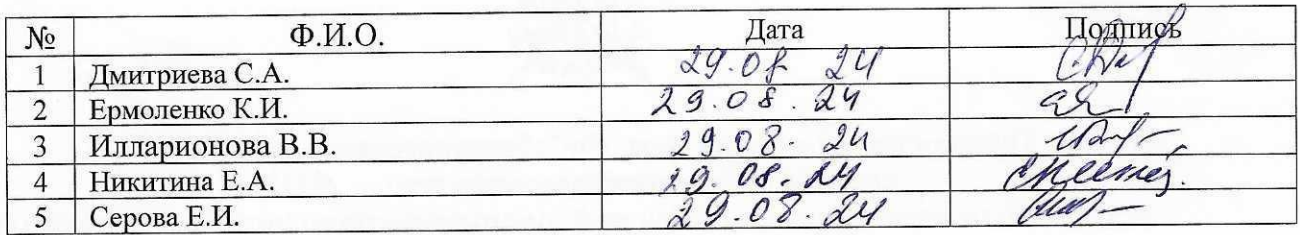 № Ф.И.О. Дата Подпись
1 Дмитриева С.А. 29.08 24
2 Ермоленко К.И. 29.08.24
3 Илларионова В.В. 29.08.24
4 Никитина Е.А. 29.08.24
5 Серова Е.И. 29.08.24